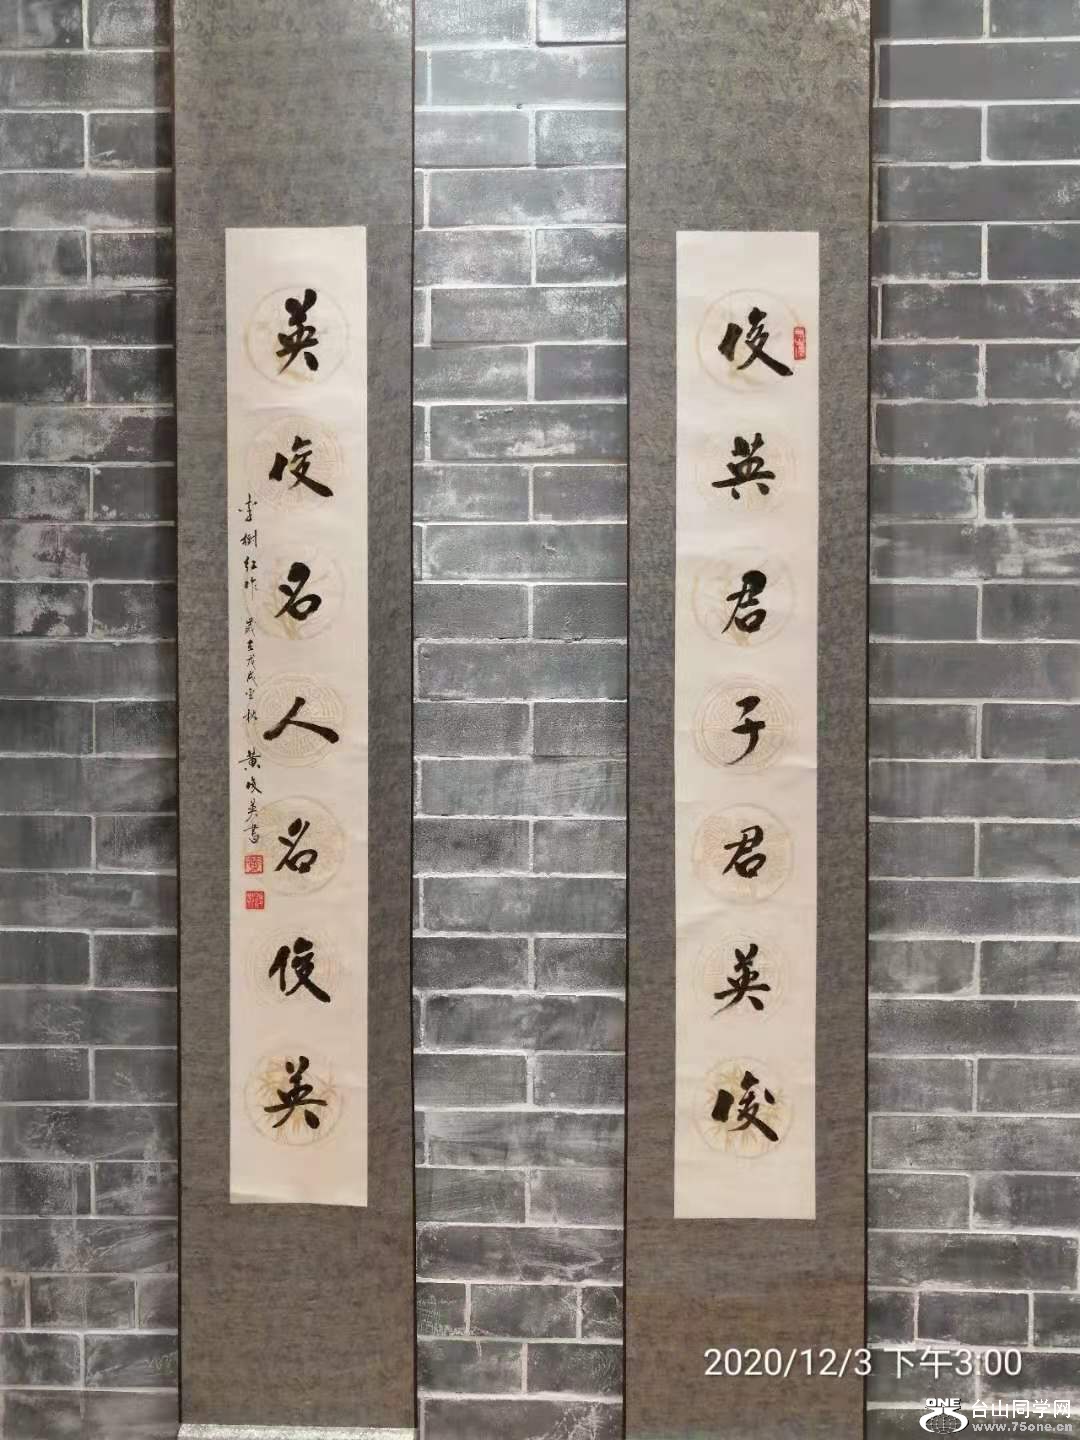 俊英君子君英俊
英俊名人名俊英
李樹红作 岁在戊戌金秋 黄俊英書
2020/12/3 下午3:00
ONE 75 台山同学网
www.75one.cn